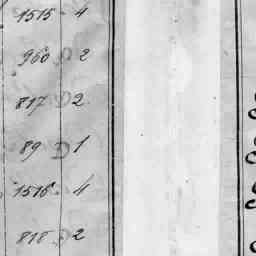 1515 - 4
960 D 2
817 D 2
89 D 1
1516 - 4
818 D 2